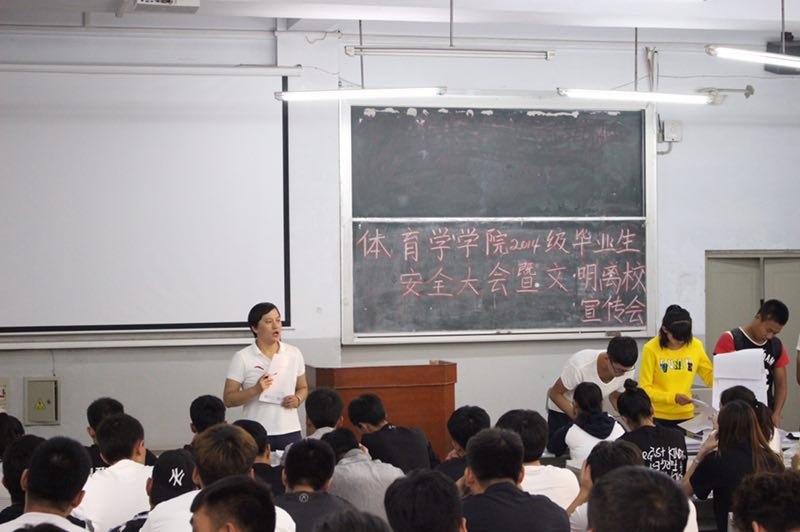 体育学学院2014级毕业生
安全大会暨文明离校
宣传会
NY